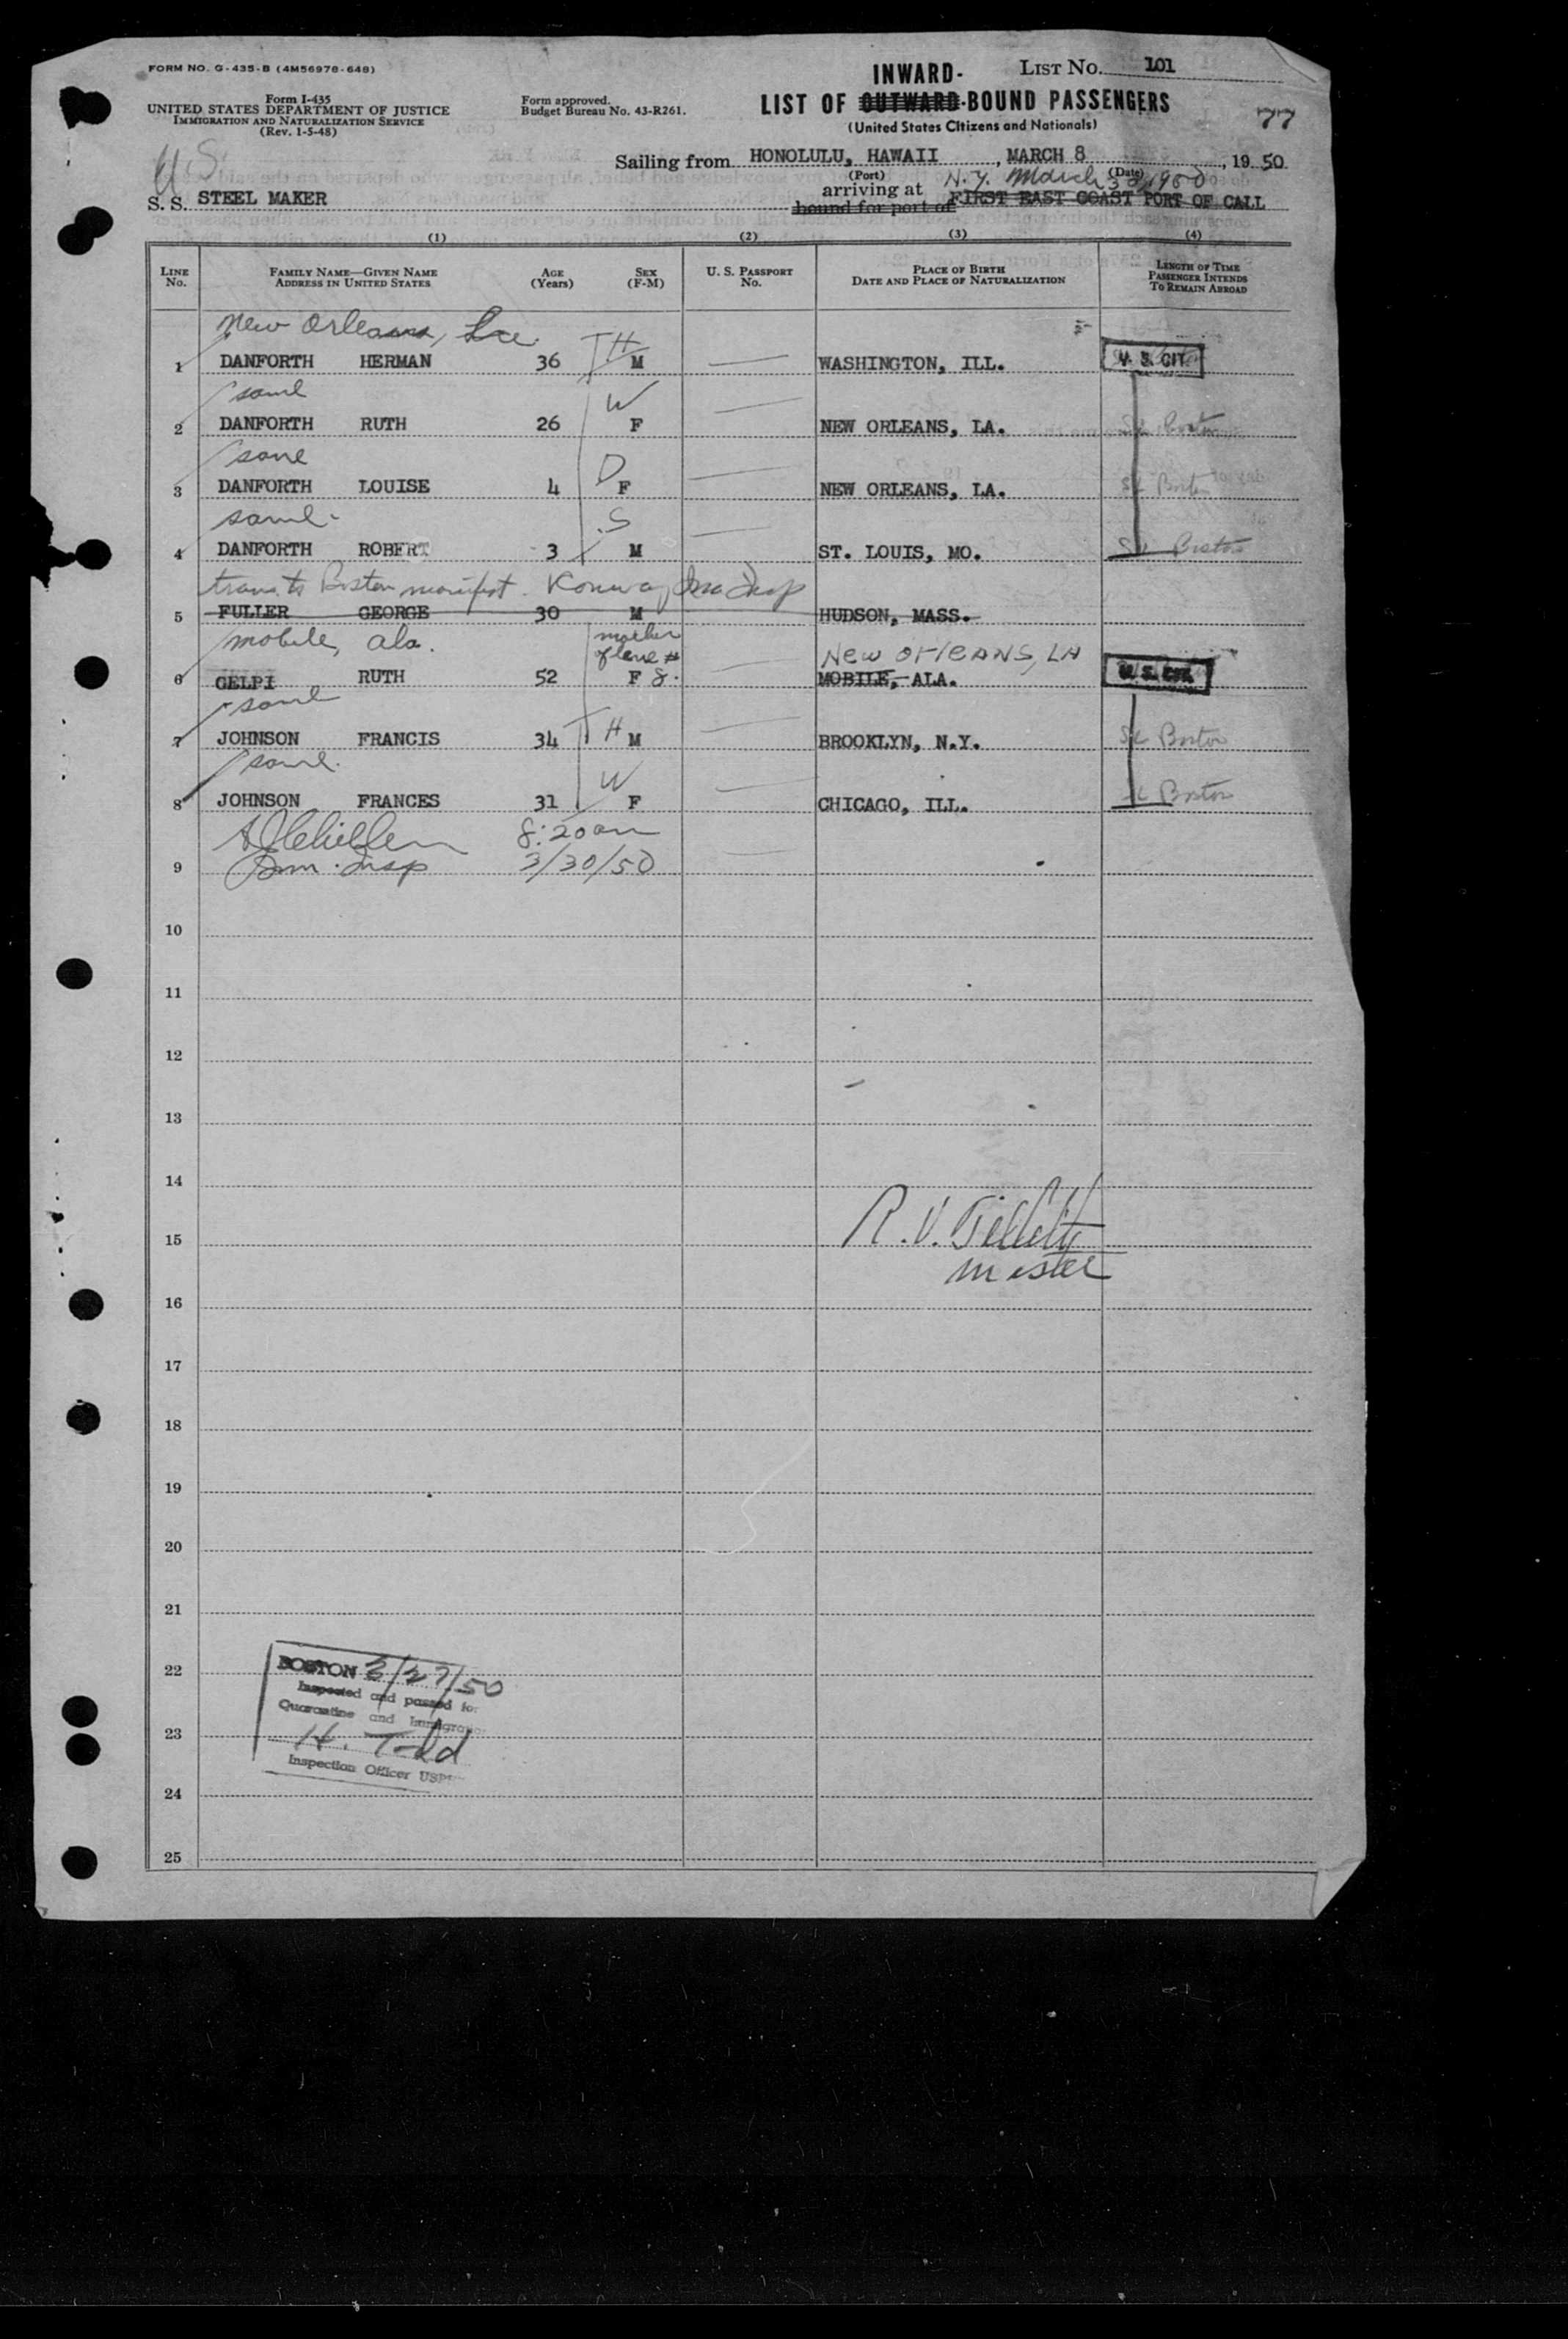 FORM NO. G-435-B (4M56978-648)
INWARD-
LIST NO. 101
Form I-435
UNITED STATES DEPARTMENT OF JUSTICE
IMMIGRATION AND NATURALIZATION SERVICE
(Rev. 1-5-48)
Form approved.
Budget Bureau No. 43-R261.
LIST OF OUTWARD-BOUND PASSENGERS
(United States Citizens and Nationals)
77
U.S.
Sailing from HONOLULU, HAWAII, MARCH 8, 19 50
(Port) (Date)
arriving at N.Y. March 1950
S. S. STEEL MAKER
bound for port of FIRST EAST COAST PORT OF CALL
(1) (2) (3) (4)
LINE No. FAMILY NAME—GIVEN NAME ADDRESS IN UNITED STATES AGE (Years) SEX (F-M) U. S. PASSPORT No. PLACE OF BIRTH DATE AND PLACE OF NATURALIZATION LENGTH OF TIME PASSENGER INTENDS TO REMAIN ABROAD
New Orleans, La. H
1 DANFORTH HERMAN 36 M WASHINGTON, ILL. U. S. CIT.
same W
2 DANFORTH RUTH 26 F NEW ORLEANS, LA. Boston
same D
3 DANFORTH LOUISE 4 F NEW ORLEANS, LA. Boston
same S
4 DANFORTH ROBERT 3 M ST. LOUIS, MO. Boston
trans to Boston manifest. Insp
5 FULLER GEORGE 30 M HUDSON, MASS.
mobile, ala. mother of line # 8. New Orleans, LA
6 GELPI RUTH 52 F MOBILE, ALA. U. S. CIT.
same
7 JOHNSON FRANCIS 34 H M BROOKLYN, N.Y. Boston
same W
8 JOHNSON FRANCES 31 F CHICAGO, ILL. Boston
8:20 am
9 Imm. Insp 3/30/50
10
11
12
13
14
15 R. V.
master
16
17
18
19
20
21
22
BOSTON 3/27/50
Inspected and passed for
Quarantine and Immigration
23
H. Todd
Inspection Officer
24
25